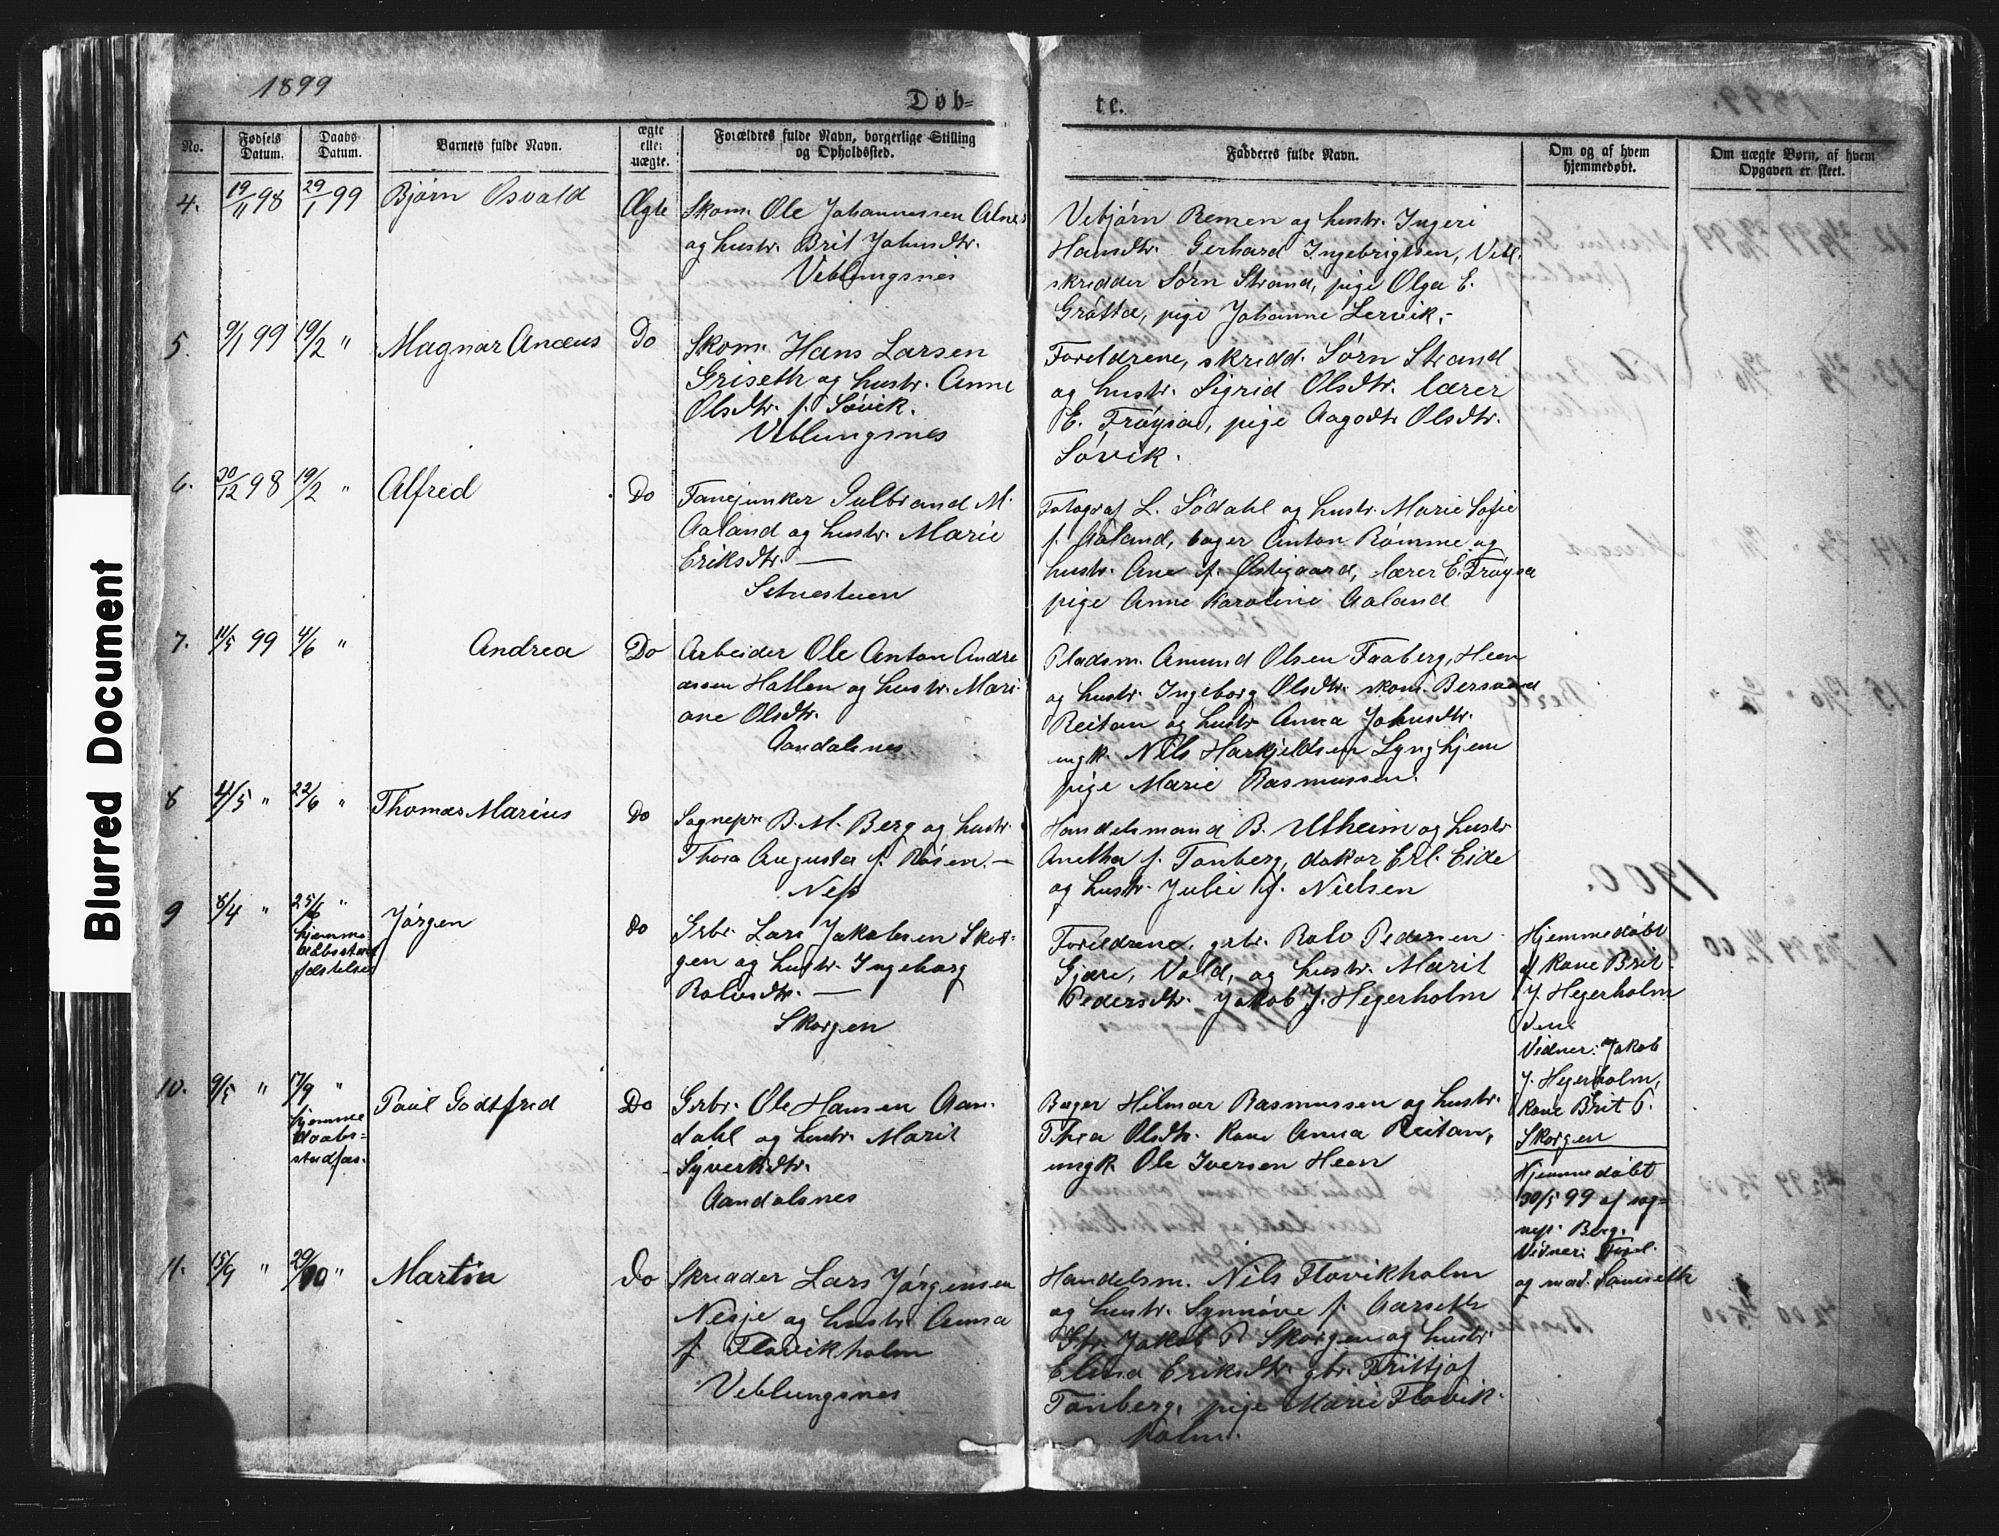 Blurred Document
1899
Døb-
te.
No.
Fødsels Datum.
Daabs Datum.
Barnets fulde Navn.
ægte eller uægte.
Forældres fulde Navn, borgerlige Stilling og Opholdssted.
Fadderes fulde Navn.
Om og af hvem hjemmedøbt.
Om uægte Børn, af hvem Opgaven er skeet.
4. 19/11 98 29/1 99 Bjørn Osvald Ægte
Skom. Ole Johannessen Alnes
og hustr. Brit Johnsdtr.
Veblungsnes
Vebjørn Remen og hustr. Ingeri
Hansdtr. Gerhard Ingebrigtsen, Vebl.
skredder Sørn Strand, pige Olga E.
Grøtta, pige Johanne Lervik.
5. 9/1 99 19/2 " Magnar Anæus Do
Skom. Hans Larsen
Griseth og hustr. Anne
Olsdtr. f. Søvik.
Veblungsnes
Foreldrene, skredd. Sørn Strand
og hustr. Sigrid Olsdtr. lærer
E. Frøysa, pige Aagodt Olsdtr.
Søvik.
6. 30/12 98 19/2 " Alfred Do
Fanejunker Gulbrand M.
Aaland og hustr. Marie
Eriksdtr. —
Setnestuen
Fotograf L. Sødahl og hustr. Marie Sofie
f. Aaland, bager Anton Rømme og
hustr. Ane f. Østigaard, lærer E. Frøysa
pige Anne Karoline Aaland
7. 11/5 99 4/6 " Andrea Do
Arbeider Ole Anton Andre
assen Hatlen og hustr. Mari
ane Olsdtr.
Aandalsnes
Pladsm. Amund Olsen Faaberg, Heen
og hustr. Ingeborg Olsdtr. skom. Bersvend
Reitan og hustr Anna Johnsdtr.
ungk. Nils Harkjeldsen Lyngheim
pige Marie Rasmussen.
8 4/5 " 22/6 " Thomas Marius Do
Sognepr B. M. Berg og hustr
Thora Augusta f. Rosen. —
Nes
Handelsmand B. Utheim og hustr
Anetha f. Tonberg, doktor Erl. Eide
og hustr. Julie f. Nielsen
9 8/4 " 25/6 " Jørgen Do
hjemme
daabsstad
fæstelse
Grbr. Lars Jakobsen Skor-
gen og hustr. Ingeborg
Rolvsdtr. —
Skorgen
Foreldrene, grbr. Rolv Pedersen
Gjøre, Vold, og hustr. Marit
Pedersdtr. Jakob J. Hegerholm
Hjemmedøbt
af Kone Brit
J. Hegerholm
den
Vidner: Jakob
J. Hegerholm,
Kone Brit P.
Skorgen
10. 9/5 " 17/9 " Paul Godtfred Do
hjemme
daabs-
stadfæs.
Grbr. Ole Hansen Aan-
dahl og hustr. Marit
Syvertsdtr.
Aandalsnes
Bager Hilmar Rasmussen og hustr.
Thea Olsdtr. Kone Anna Reitan,
ungk. Ole Iversen Heen
Hjemmedøbt
30/5 99 af sog-
nepr. Berg.
Vidner: Forel.
og mad. Soueseth
11. 15/9 " 29/10 " Martin Do
Skredder Lars Jørgensen
Nesje og hustr Anna
f. Flovikholm
Veblungsnes
Handelsm. Nils Flovikholm
og hustr. Synnøve f. Aarseth
Gbr. Jakob P. Skorgen og hustr.
Elena Eriksdtr. gbr. Frittjof
Tonberg, pige Marie Flovik
holm.